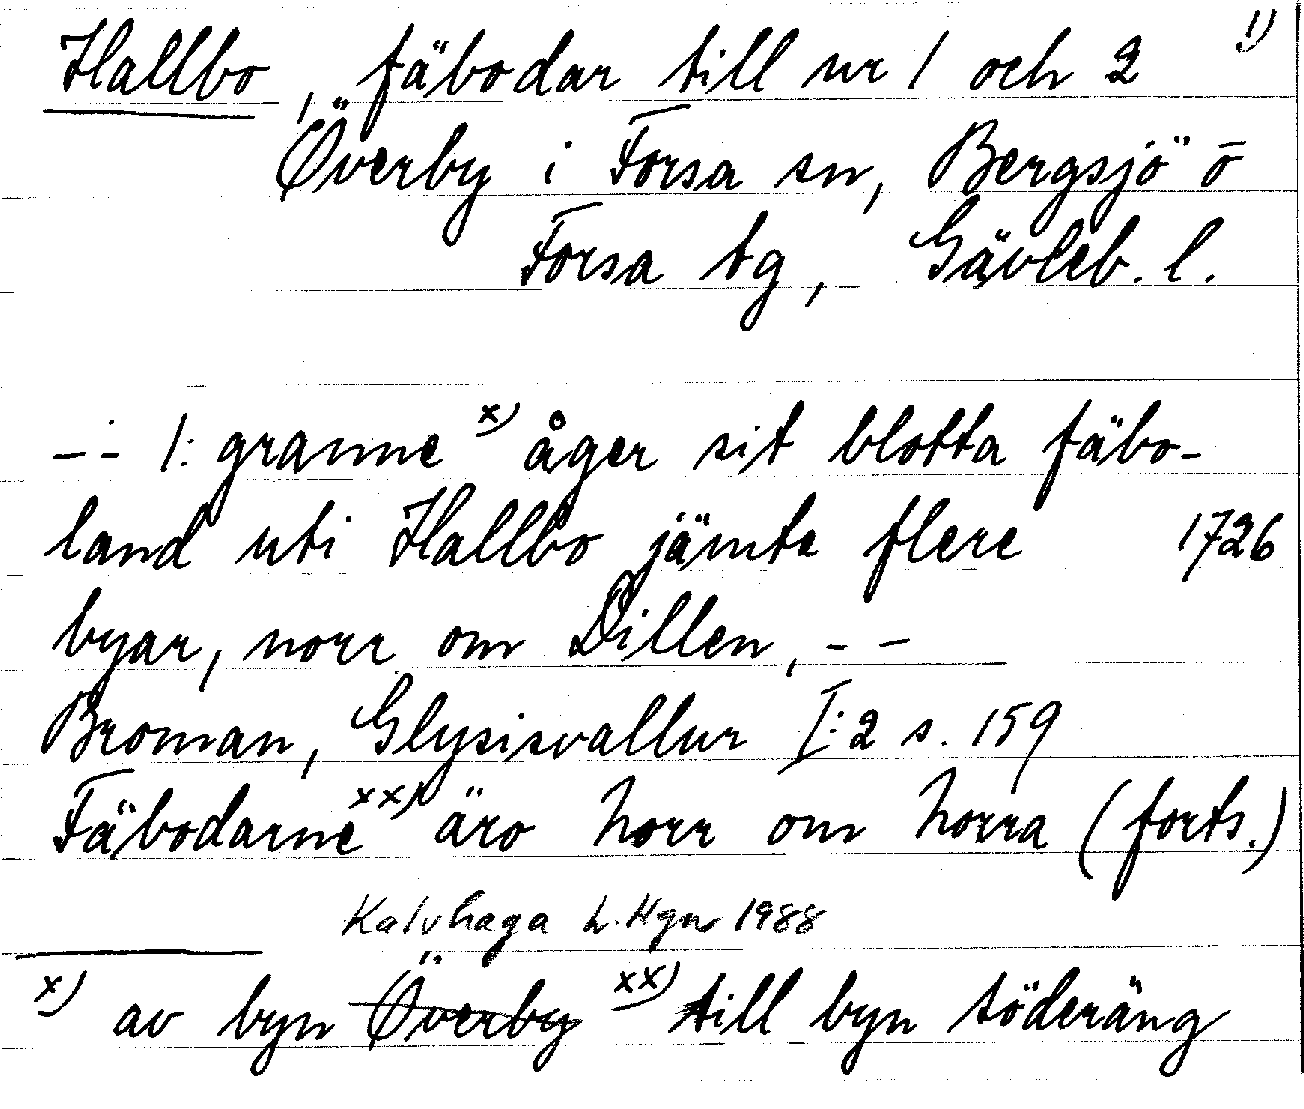 Hallbo, fäbodar till nr 1 och 2 1)
Överby i Forsa sn, Bergsjö o
Forsa tg, Gävleb. l.
-- 1: granne x) åger sit blotta fäbo-
land uti Hallbo jämte flere 1726
byar, norr om Dillen, --
Broman, Glysisvallur I:2 s. 159
Fäbodarne xx) äro norr om norra (forts.)
Kalvhaga L. Hgn 1988
x) av byn Överby xx) till byn Söderäng